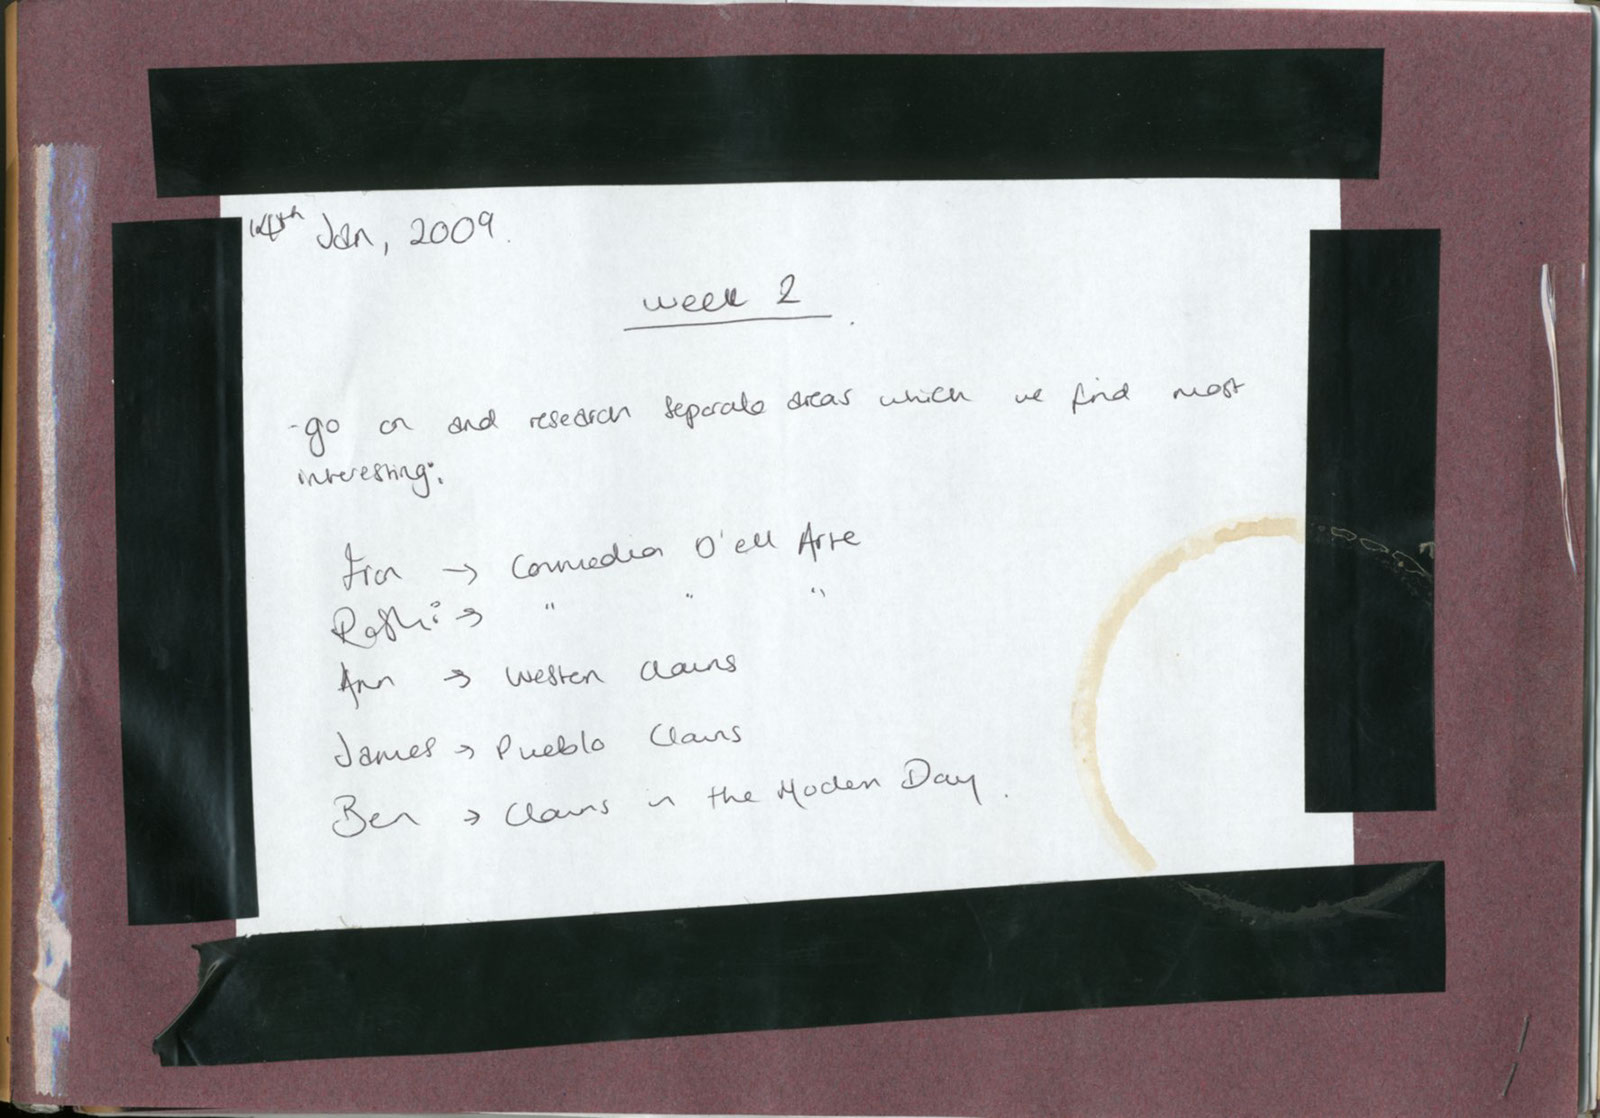 14th Jan, 2009.
week 2
- go on and research separate areas which we find most
interesting.
Fran → Commedia D'ell Arte
Rashi → " " "
Ann → Westen Clowns
James → Pueblo Clowns
Ben → Clowns in the Moden Day.